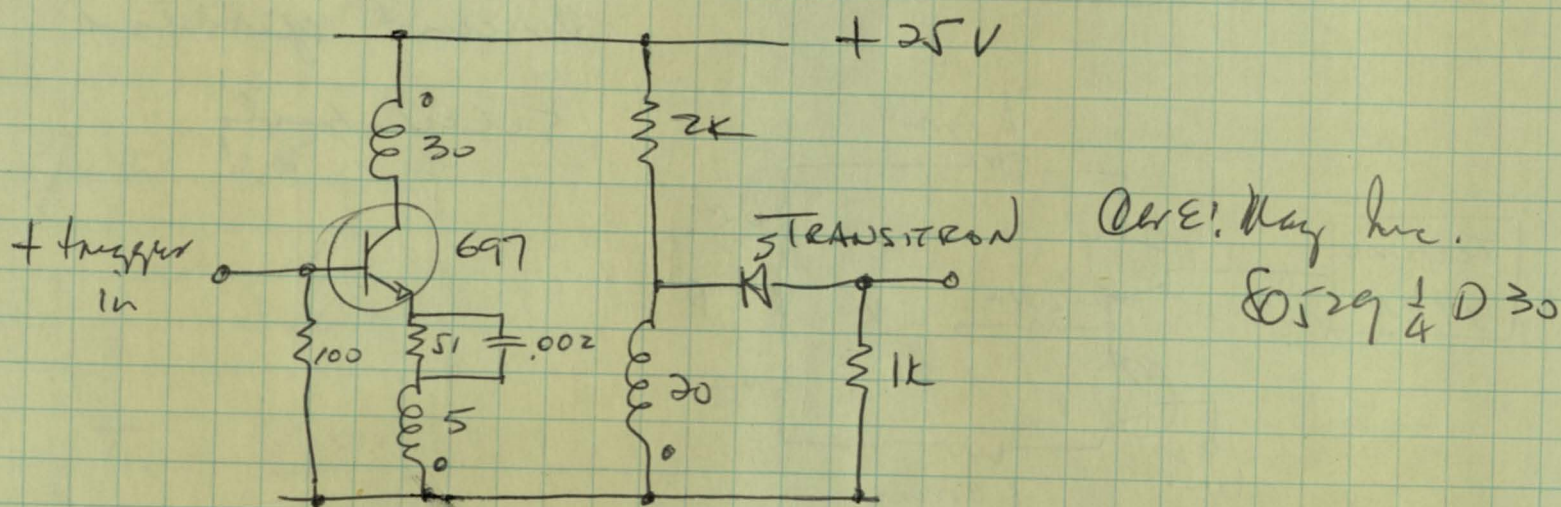 + 25 V
30
2K
+ trigger
in
697
TRANSITRON
Core: Mag Inc.
80529 1/4 D 30
100
51
.002
5
20
1K